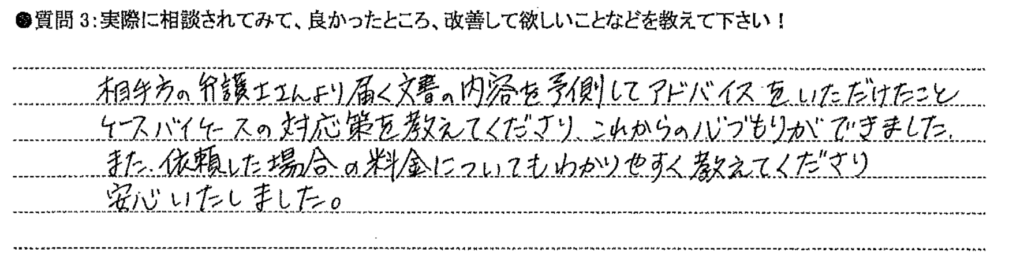 ●質問3:実際に相談されてみて、良かったところ、改善して欲しいことなどを教えて下さい!
相手方の弁護士さんより届く文書の内容を予測してアドバイスをいただけたこと
ケースバイケースの対応策を教えてくださり、これからの心づもりができました。
また、依頼した場合の料金についてもわかりやすく教えてくださり
安心いたしました。